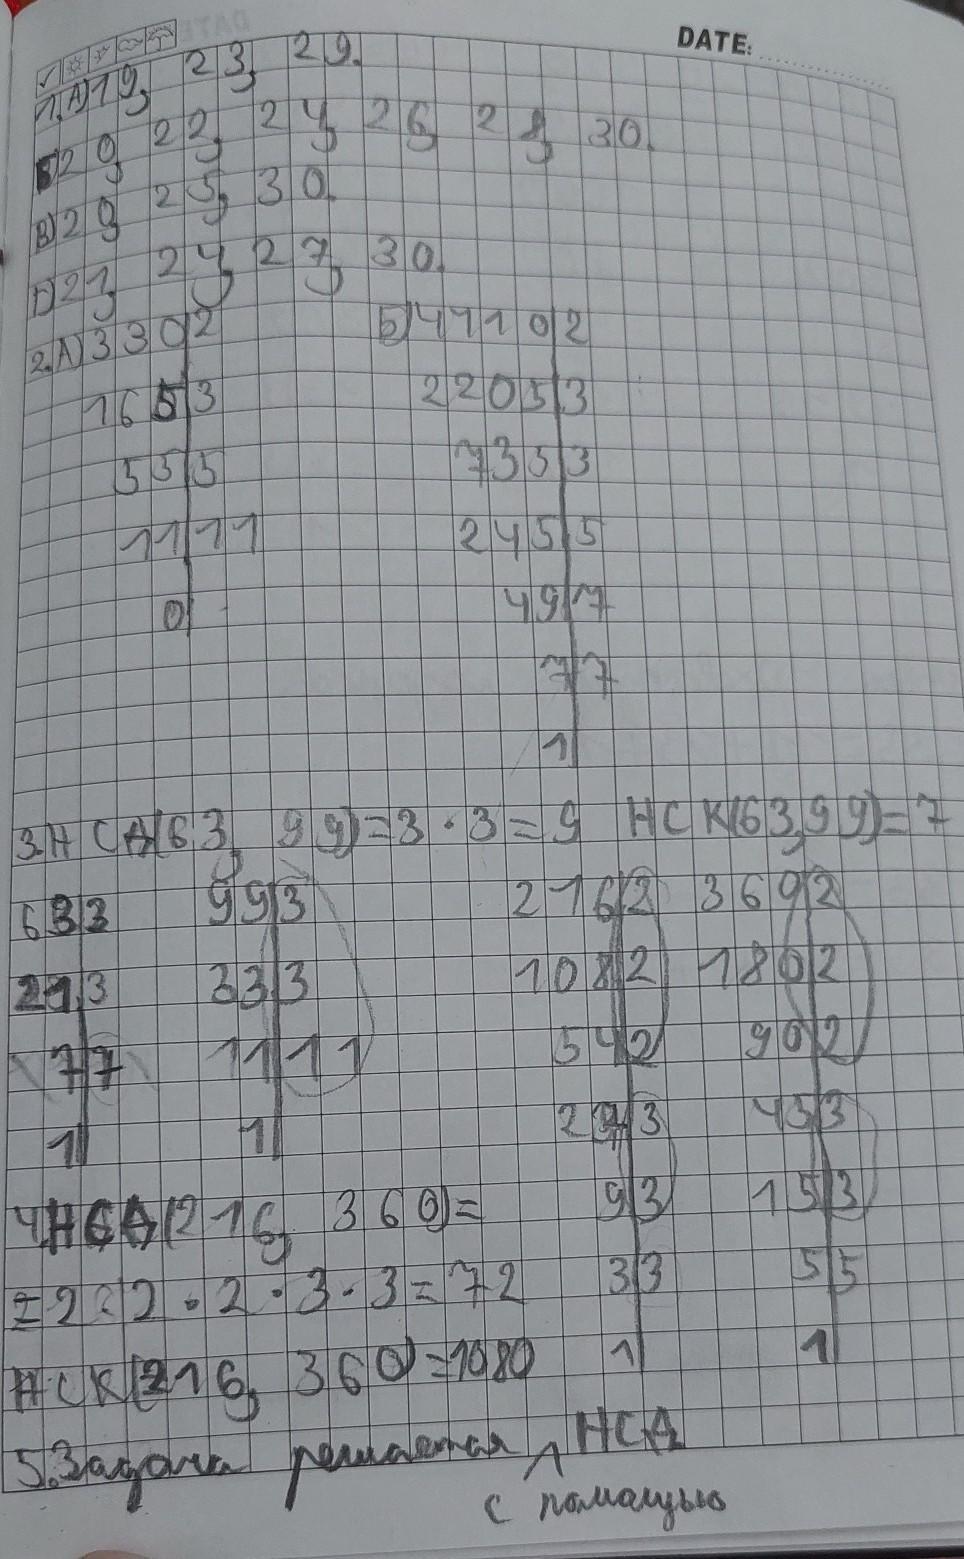 DATE:
1.А)19, 23, 29.
Б)20, 22, 24, 26, 28, 30.
В)20, 25, 30.
Г)21, 24, 27, 30.
2.А)330|2 Б)4410|2
165|3 2205|3
55|5 735|3
11|11 245|5
0 49|7
7|7
1
3.НСД(63, 99)=3·3=9 НСК(63,99)=7
63|3 99|3 216|2 360|2
21|3 33|3 108|2 180|2
7|7 11|11 54|2 90|2
1 1 27|3 45|3
4.НСД(216, 360)= 9|3 15|3
=2·2·2·3·3=72 3|3 5|5
НСК(216, 360)=1080 1 1
5.Задача решается НСД
с помощью